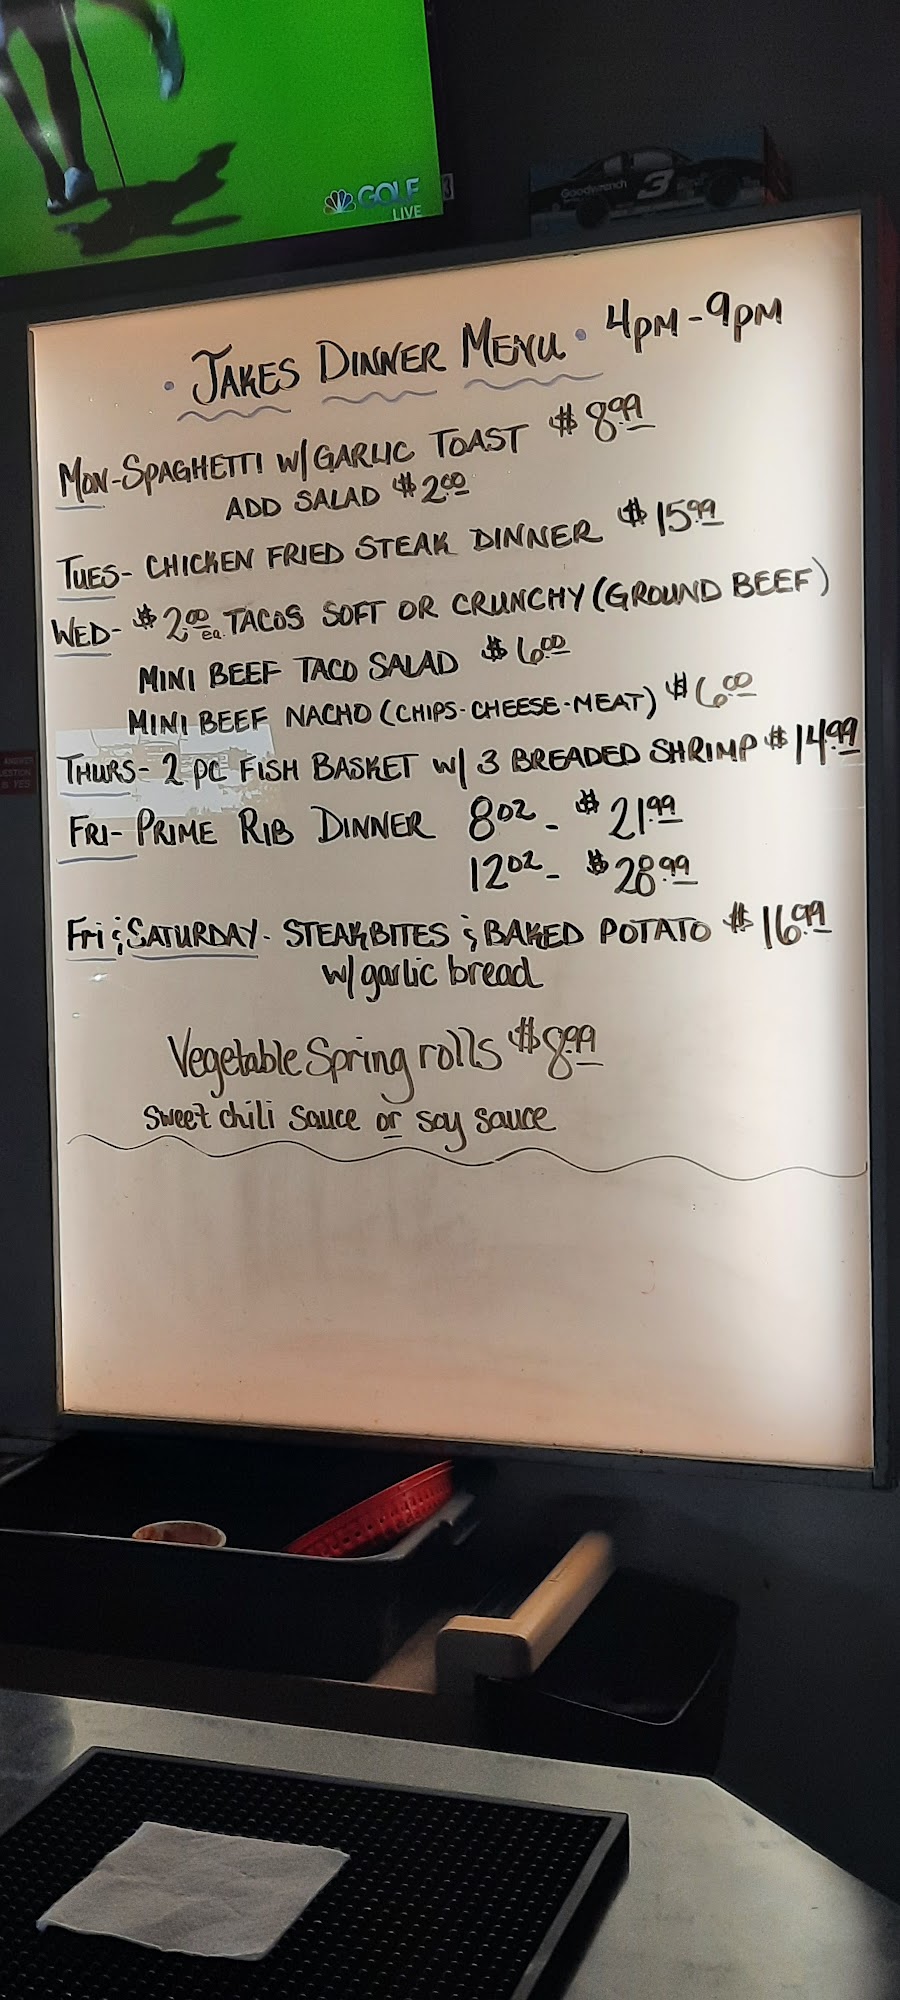 GOLF
LIVE
Goodwrench 3
• JAKES DINNER MENU • 4PM-9PM
MON-SPAGHETTI W/GARLIC TOAST $8.99
ADD SALAD $2.00
TUES- CHICKEN FRIED STEAK DINNER $15.99
WED- $2.00 ea. TACOS SOFT OR CRUNCHY (GROUND BEEF)
MINI BEEF TACO SALAD $6.00
MINI BEEF NACHO (CHIPS-CHEESE-MEAT) $6.00
THURS- 2 PC FISH BASKET W/ 3 BREADED SHRIMP $14.99
FRI- PRIME RIB DINNER 8oz - $21.99
12oz - $28.99
Fri & SATURDAY- STEAKBITES & BAKED POTATO $16.99
w/garlic bread
Vegetable Spring rolls $8.99
Sweet chili sauce or soy sauce